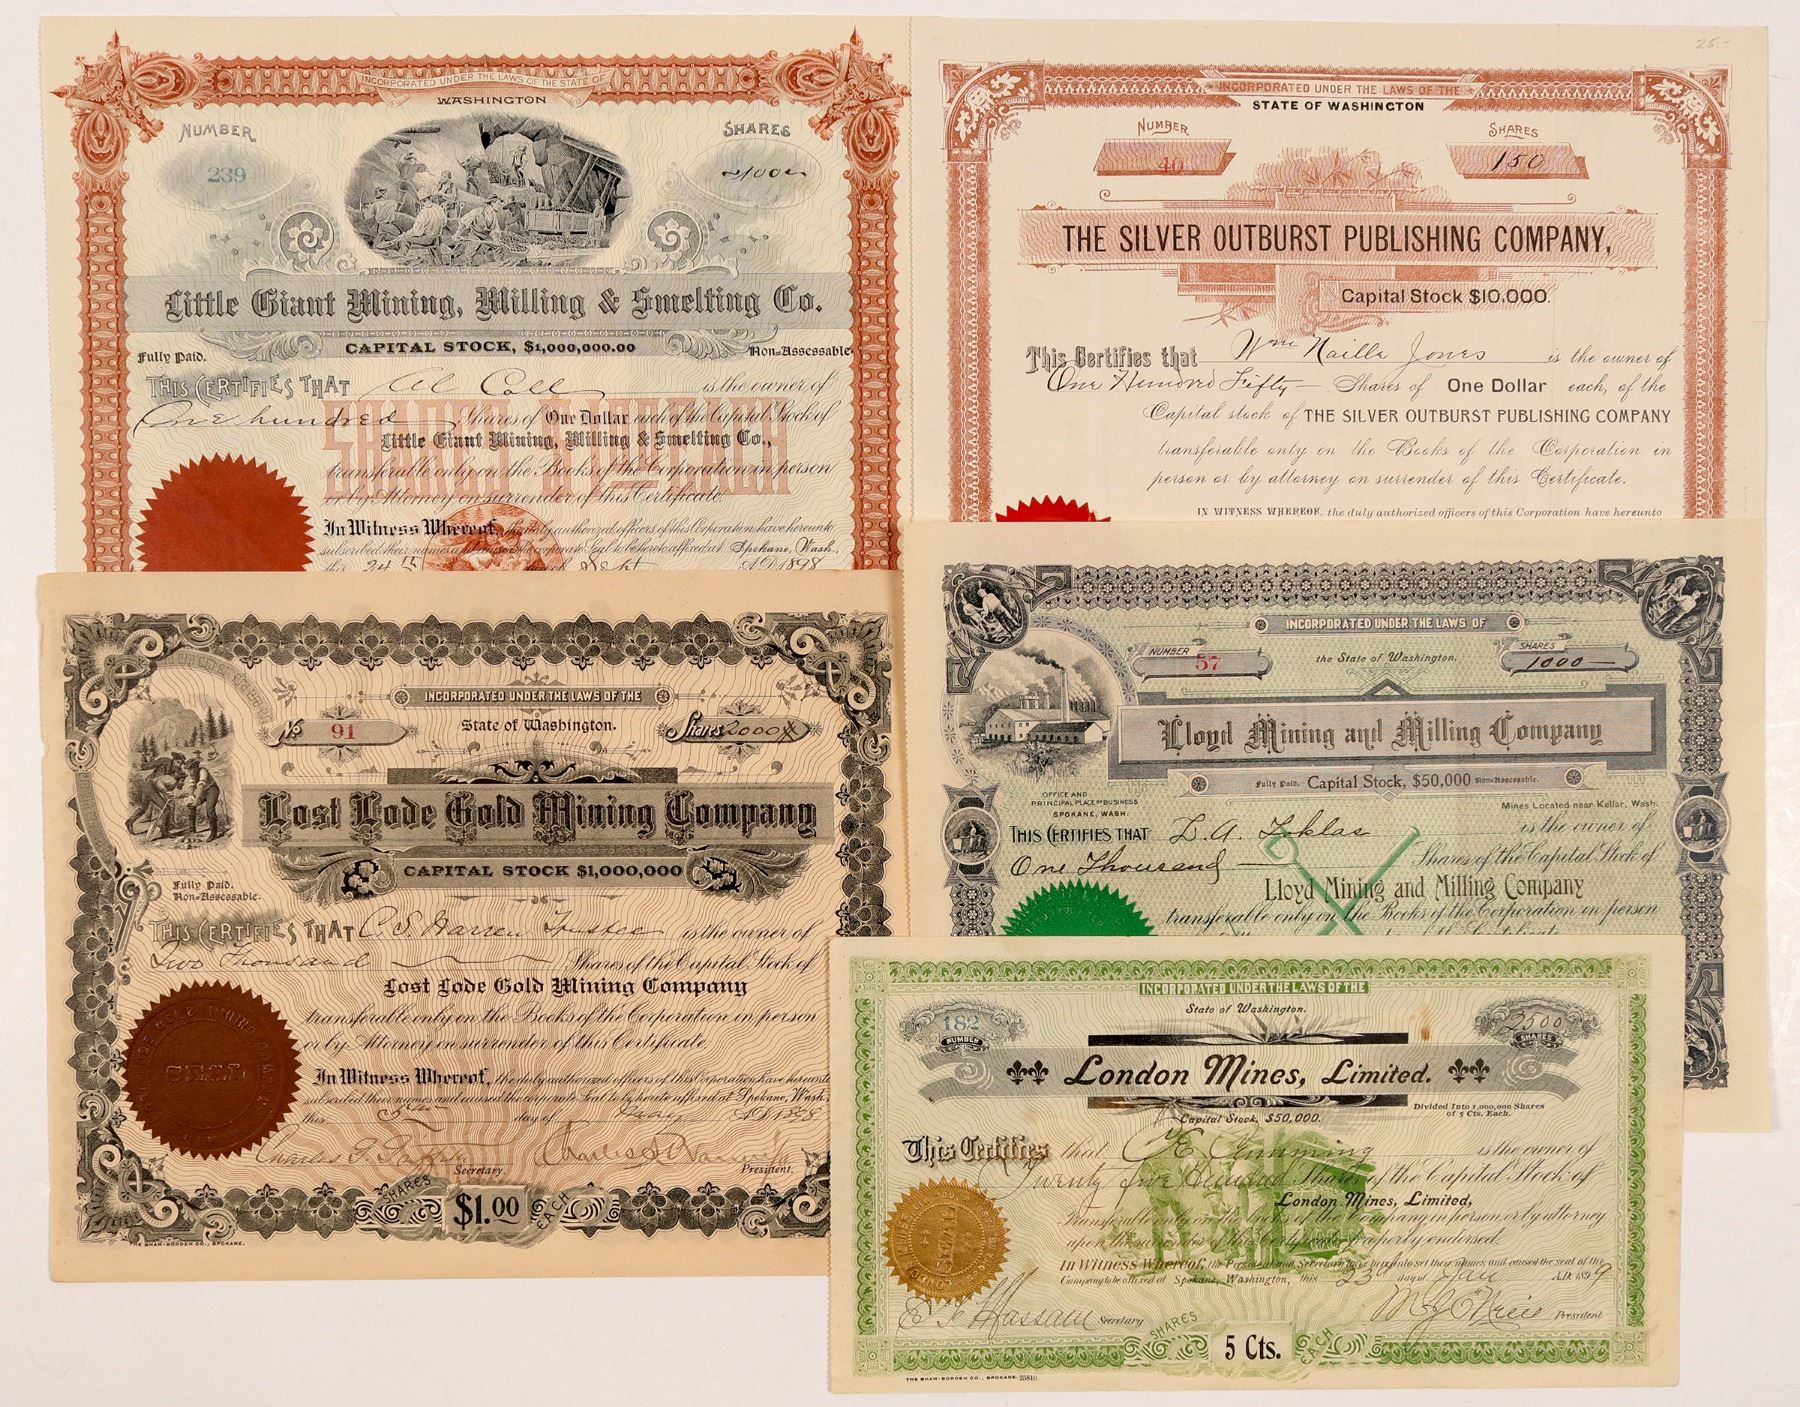 INCORPORATED UNDER THE LAWS OF THE STATE OF
WASHINGTON
NUMBER
SHARES
239
100
Little Giant Mining, Milling & Smelting Co.
CAPITAL STOCK, $1,000,000.00
Fully Paid.
Non-Assessable
THIS CERTIFIES THAT Al Coll is the owner of
One hundred Shares of One Dollar each of the Capital Stock of
Little Giant Mining, Milling & Smelting Co.,
transferable only on the Books of the Corporation in person
or by Attorney on surrender of this Certificate.
In Witness Whereof, the duly authorized officers of this Corporation have hereunto
subscribed their names and caused the corporate Seal to be hereto affixed at Spokane, Wash.,
this 24th day of Sept A.D. 1898
25.-
INCORPORATED UNDER THE LAWS OF THE
STATE OF WASHINGTON
NUMBER
SHARES
40
150
THE SILVER OUTBURST PUBLISHING COMPANY,
Capital Stock $10,000.
This Certifies that Wm Naille Jones is the owner of
One Hundred Fifty Shares of One Dollar each, of the
Capital stock of THE SILVER OUTBURST PUBLISHING COMPANY
transferable only on the Books of the Corporation in
person or by attorney on surrender of this Certificate.
IN WITNESS WHEREOF, the duly authorized officers of this Corporation have hereunto
INCORPORATED UNDER THE LAWS OF THE
State of Washington.
No 91
Shares 2000
Lost Lode Gold Mining Company
CAPITAL STOCK $1,000,000
Fully Paid.
Non-Assessable.
THIS CERTIFIES THAT C. S. Warren Trustee is the owner of
Two Thousand Shares of the Capital Stock of
Lost Lode Gold Mining Company
transferable only on the Books of the Corporation in person
or by Attorney on surrender of this Certificate.
In Witness Whereof, the duly authorized officers of this Corporation have hereunto
subscribed their names and caused the corporate Seal to be hereto affixed at Spokane, Wash.
this 5th day of May A.D. 1898
SEAL
Charles
Secretary.
President.
SHARES
$1.00
EACH
THE SHAW-BORDEN CO., SPOKANE.
INCORPORATED UNDER THE LAWS OF
the State of Washington.
NUMBER
57
SHARES
1000
Lloyd Mining and Milling Company
Fully Paid. Capital Stock, $50,000 Non-Assessable.
OFFICE AND
PRINCIPAL PLACE OF BUSINESS
SPOKANE, WASH.
Mines Located near Kellar, Wash.
THIS CERTIFIES THAT D. A. is the owner of
One Thousand Shares of the Capital Stock of
Lloyd Mining and Milling Company
transferable only on the Books of the Corporation in person
INCORPORATED UNDER THE LAWS OF THE
State of Washington.
182
NUMBER
2500
SHARES
London Mines, Limited.
Capital Stock, $50,000.
Divided Into 1,000,000 Shares
of 5 Cts. Each.
This Certifies that E Cumming is the owner of
Twenty five Hundred Shares of the Capital Stock of
London Mines, Limited,
Transferable only on the books of the Company in person or by attorney
upon the surrender of this Certificate properly endorsed.
In Witness Whereof, the President and Secretary have hereunto set their names and caused the seal of the
Company to be affixed at Spokane, Washington, this 23d day of Jan A.D. 1899
SEAL
Secretary
President
SHARES
5 Cts.
EACH
THE SHAW-BORDEN CO., SPOKANE. 25810